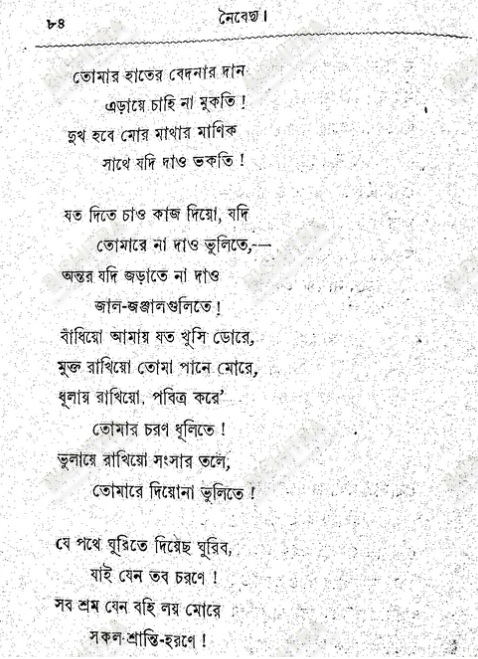 ৮৪
নৈবেদ্য।
তোমার হাতের বেদনার দান
এড়ায়ে চাহি না মুকতি !
দুখ হবে মোর মাথার মাণিক
সাথে যদি দাও ভকতি !
যত দিতে চাও কাজ দিয়ো, যদি
তোমারে না দাও ভুলিতে,—
অন্তর যদি জড়াতে না দাও
জাল-জঞ্জালগুলিতে !
বাঁধিয়ো আমায় যত খুসি ডোরে,
মুক্ত রাখিয়ো তোমা পানে মোরে,
ধূলায় রাখিয়ো, পবিত্র করে’
তোমার চরণ ধূলিতে !
ভুলায়ে রাখিয়ো সংসার তলে,
তোমারে দিয়োনা ভুলিতে !
যে পথে ঘুরিতে দিয়েছ ঘুরিব,
যাই যেন তব চরণে !
সব শ্রম যেন বহি লয় মোরে
সকল শ্রান্তি-হরণে !